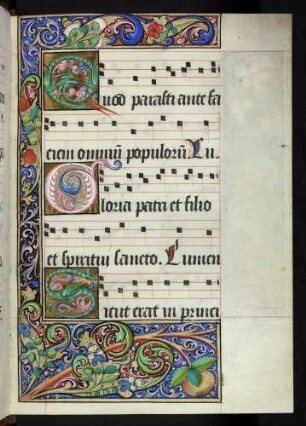 Quod parasti ante fa
ciem omniũ populorũ. Lu.
Gloria patri et filio
et spiritui sancto. Lumen
Sicut erat in princi